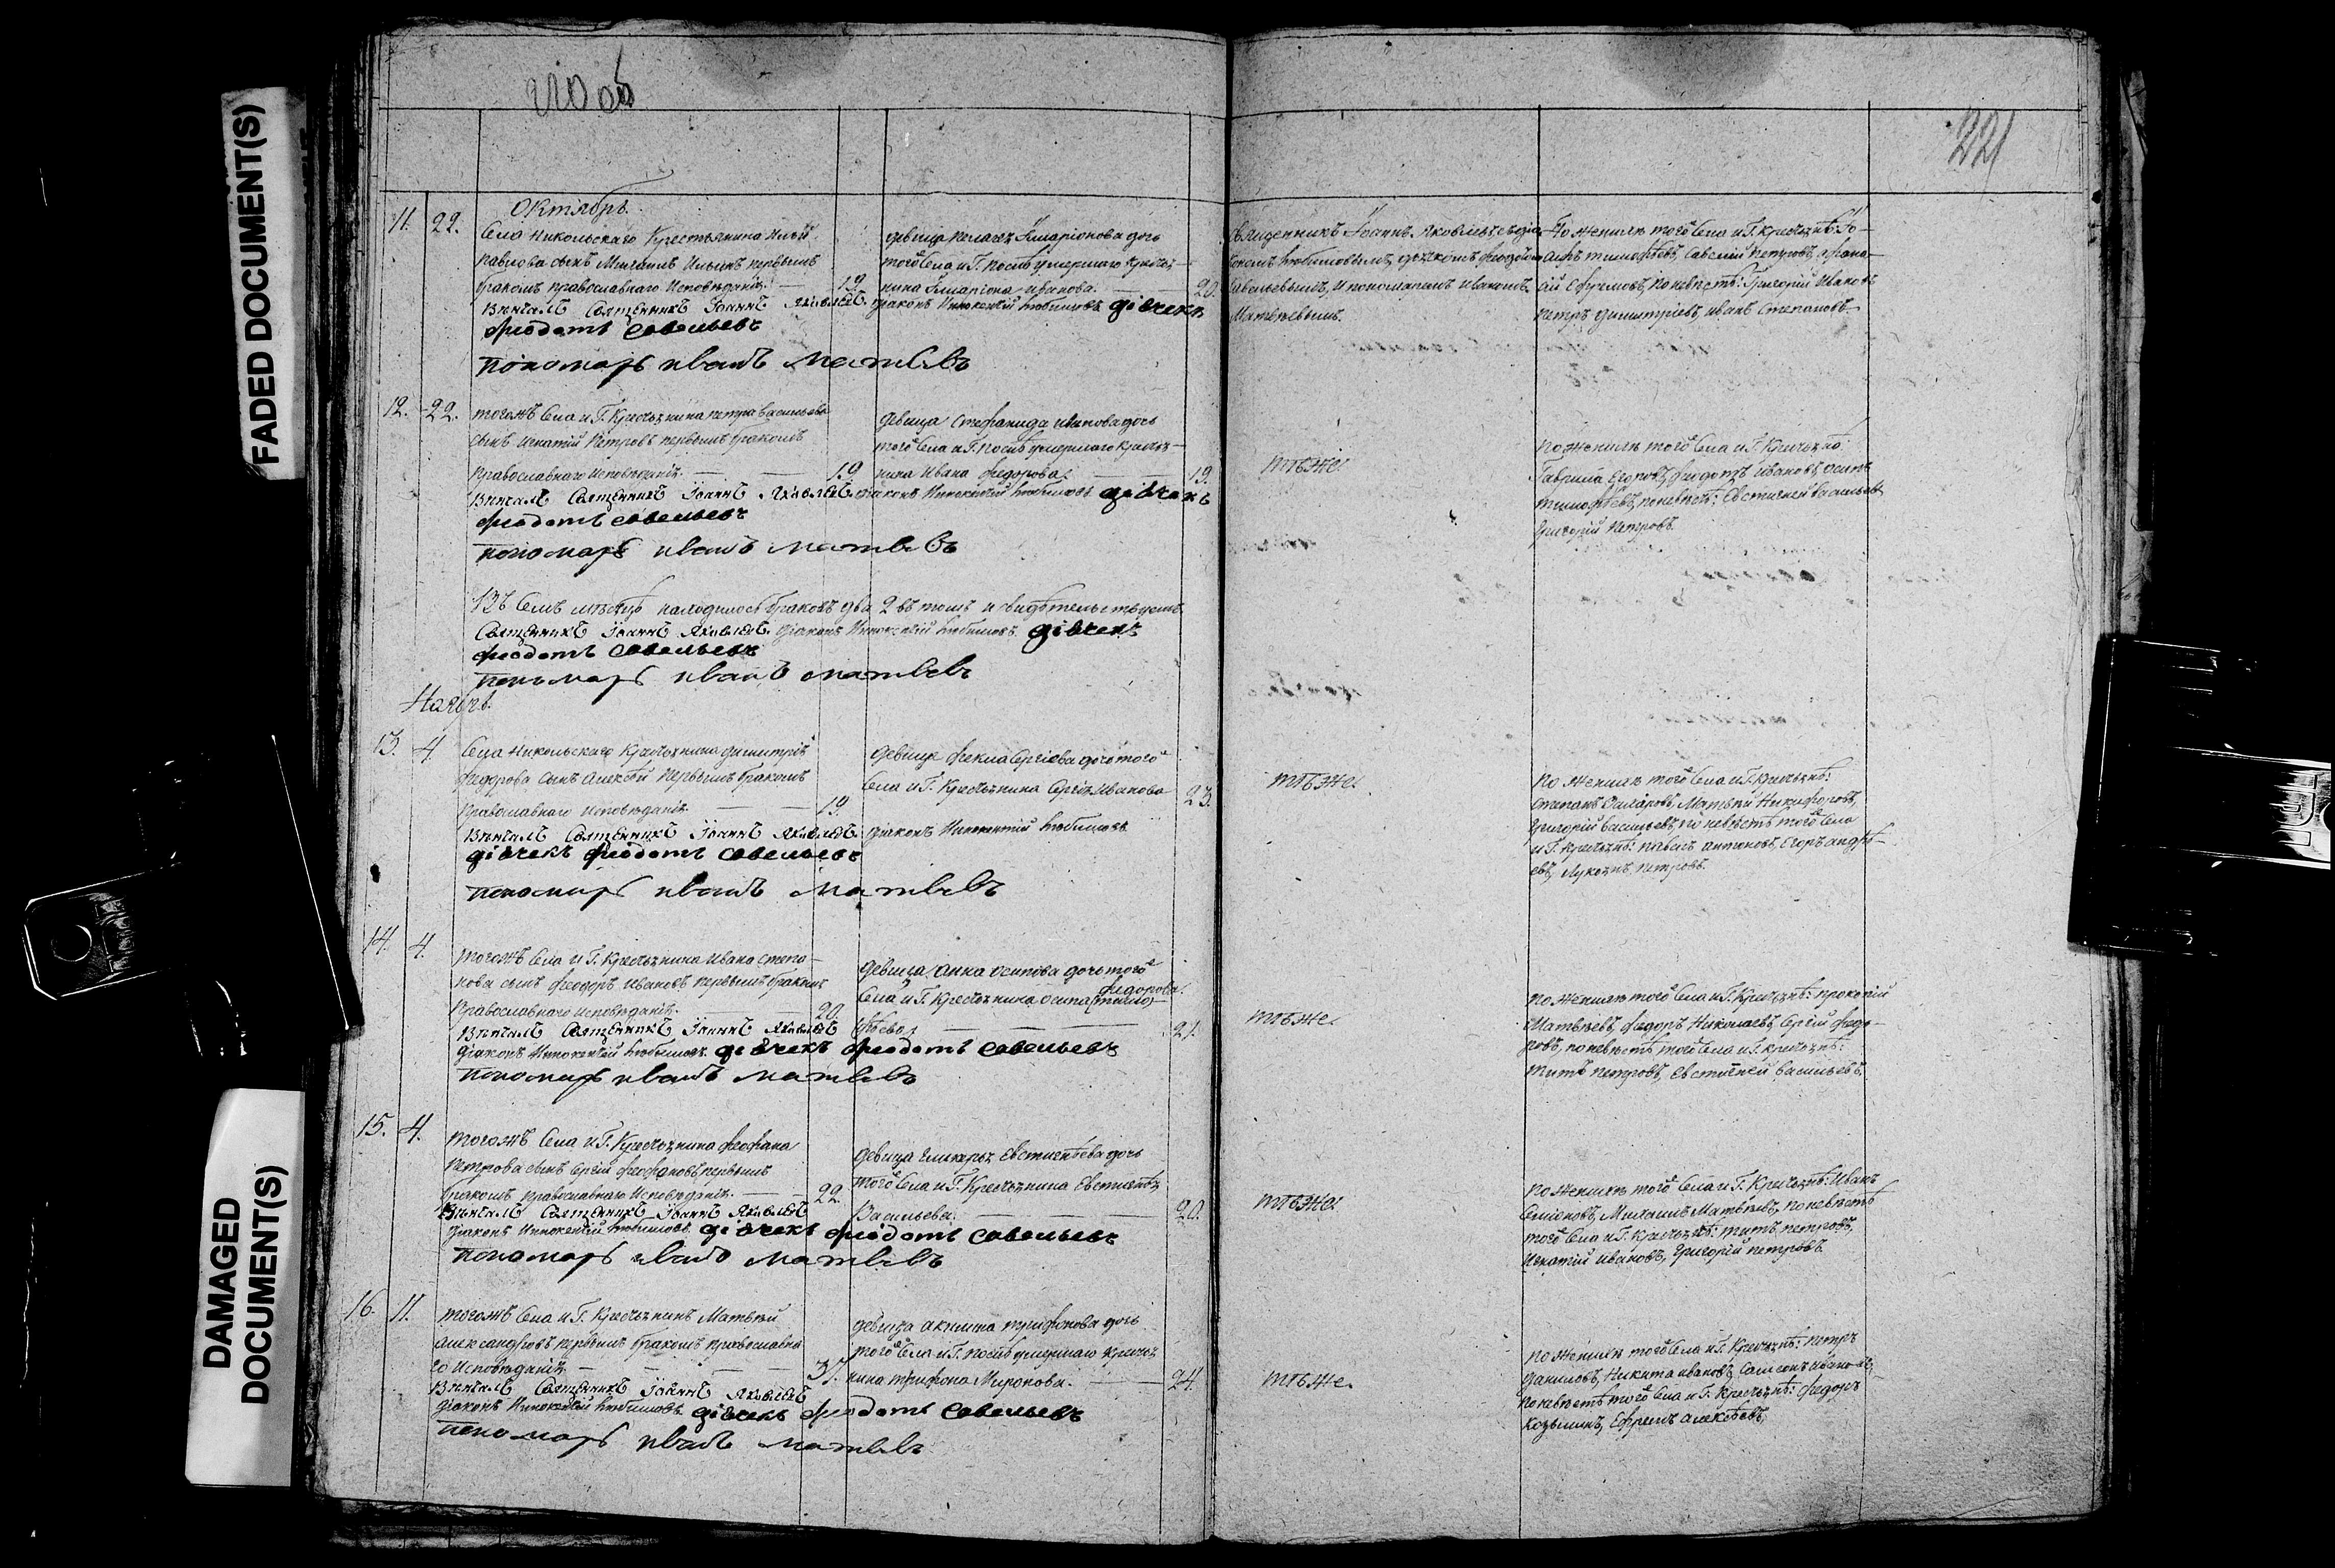 FADED DOCUMENT(S)
DAMAGED
DOCUMENT(S)
221
Октябрь.
11. 22.
Села Никольскаго Крестьянина Ильи
Павлова сынъ Михаилъ Ильинъ первымъ
бракомъ православнаго Исповѣданія. — 19.
Вѣнчалъ Священникъ Іоаннъ Яковлевъ. Діаконъ Иннокентій Любимовъ. дiачекъ
Феодотъ Савельевъ
пономарь иванъ Матвѣевъ
девица Пелагея Иларіонова дочь
того Села и Г. послѣ умершаго крестья-
нина Иларіона Иванова. — 20.
Священникъ Іоаннъ Яковлевъ съ діа-
кономъ Любимовымъ, дьячкомъ Феодотомъ
Савельевымъ, и пономаремъ Иваномъ
Матвѣевымъ.
По женихѣ того Села и Г. крестьянѣ:
тимофѣевъ, Савелій Петровъ, Афана-
сій Ефремовъ, По невѣстѣ: Григорій Ивановъ
петръ димитріевъ, иванъ Степановъ
12. 22.
тогожъ Села и Г. Крестьянина петра васильева
сынъ игнатій Петровъ первымъ бракомъ
Православнаго Исповѣданія. — — 19.
Вѣнчалъ Священникъ Іоаннъ Яковлевъ. Діаконъ Иннокентій Любимовъ. дiачекъ
феодотъ савельевъ
пономарь иванъ матвѣевъ
девица Стефанида иванова дочь
того Села и Г. послѣ умершаго крестья-
нина Ивана Федорова. — 19.
тѣже.
По женихѣ того Села и Г. Крестьянѣ:
Гаврила Егоровъ, федотъ ивановъ, осипъ
тимофѣевъ, по невѣстѣ: Евстигней васильевъ
Григорій Петровъ.
Въ Семъ мѣсяцѣ находилось браковъ два 2 въ томъ и свидѣтельствуемъ.
Священникъ Іоаннъ Яковлевъ. Діаконъ Иннокентій Любимовъ. дiачекъ
феодотъ савельевъ
пономарь иванъ матвѣевъ
Ноябрь.
13. 4.
Села Никольскаго Крестьянина димитрія
федорова сынъ алексѣй первымъ бракомъ
православнаго исповѣданія. — — 19.
Вѣнчалъ Священникъ Іоаннъ Яковлевъ. Діаконъ Иннокентій Любимовъ.
дiачекъ феодотъ савельевъ
пономарь иванъ матвѣевъ
девица фекла Сергіева дочь того
Села и Г. Крестьянина Сергія Иванова 23.
тѣже.
По женихѣ того Села и Г. Крестьянѣ:
Степанъ Матвѣй Никифоровъ,
Григорій васильевъ, по невѣстѣ того Села
и Г. Крестьянѣ: павелъ антоновъ, Егоръ андрѣ-
евъ, Лукьянъ петровъ.
14. 4.
тогожъ Села и Г. Крестьянина Ивана степа-
нова сынъ феодоръ ивановъ первымъ бракомъ
Православнаго исповѣданія. 20.
Вѣнчалъ Священникъ Іоаннъ Яковлевъ
Діаконъ Иннокентій Любимовъ. дiачекъ феодотъ савельевъ
пономарь иванъ матвѣевъ
девица анна осипова дочь того
федорова.
Села и Г. Крестьянина осипа (тимо-
фѣева) — — 21.
тѣже.
По женихѣ того Села и Г. Крестьянѣ: прокопій
Матвѣевъ, федоръ Николаевъ, Сергій федо-
ровъ, по невѣстѣ того Села и Г. крестьянѣ:
титъ петровъ, евстигней васильевъ.
15. 4.
тогожъ Села и Г. Крестьянина феофана
Петрова сынъ Сергій феофановъ первымъ
бракомъ православнаго Исповѣданія. — 22.
Вѣнчалъ Священникъ Іоаннъ Яковлевъ
Діаконъ Иннокентій Любимовъ. дiачекъ феодотъ савельевъ
пономарь иванъ матвѣевъ
девица гликерья Евстигнѣева дочь
того Села и Г. Крестьянина Евстигнѣя
Васильева. — — 20.
тѣже.
По женихѣ того Села и Г. Крестьянѣ: Иванъ
Семіоновъ, Михаилъ Матвѣевъ, по невѣстѣ
того Села и Г. Крестьянѣ: титъ петровъ,
Игнатій ивановъ, Григорій петровъ.
16. 11.
тогожъ Села и Г. Крестьянинъ Матвѣй
Александровъ первымъ бракомъ православна-
го Исповѣданія — — 31.
Вѣнчалъ Священникъ Іоаннъ Яковлевъ
Діаконъ Иннокентій Любимовъ. дiачекъ феодотъ савельевъ
пономарь иванъ матвѣевъ
девица акилина трифонова дочь
того Села и Г. послѣ умершаго кресть-
нина трифона Миронова. — 24.
тѣже.
По женихѣ того Села и Г. Крестьянѣ: петръ
даниловъ, Никита ивановъ, Самсонъ ивановъ,
по невѣстѣ того Села и Г. Крестьянѣ: федоръ
козьминъ, Ефремъ алексѣевъ.